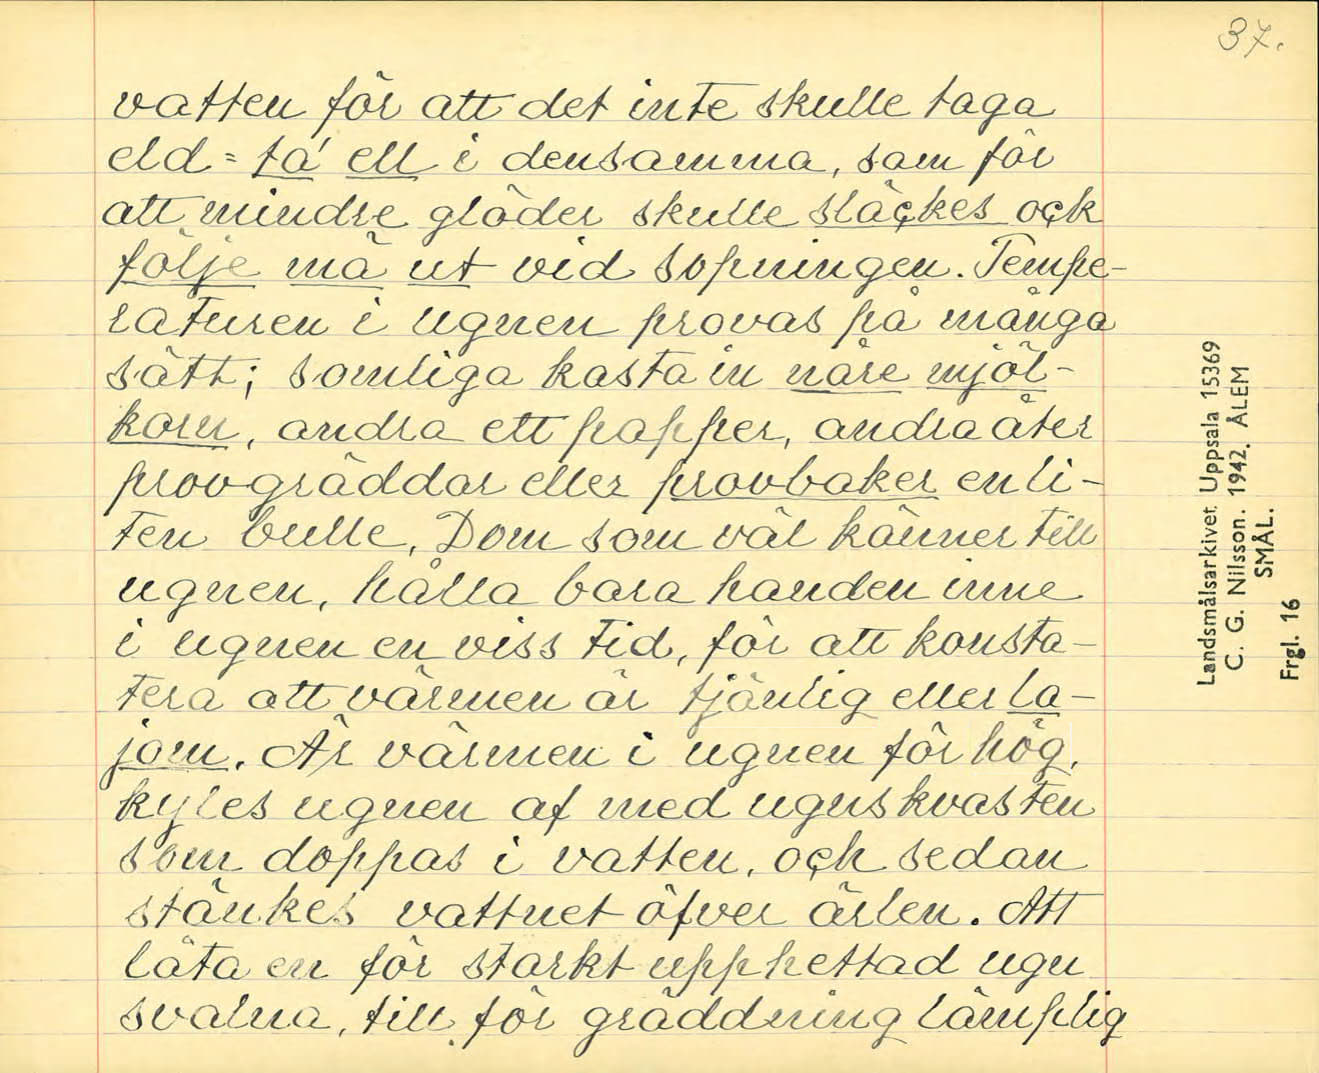 37.
vatten för att det inte skulle taga
eld = tá ell i densamma, som för
att mindre glöder skulle släckes ock
följe mä ut vid sopningen. Tempe-
raturen i ugnen provas på många
sätt; somliga kasta in nåre mjöl-
korn, andra ett papper, andra åter
provgräddar eller provbaker en li-
ten bulle. Dom som väl känner till
ugnen, hålla bara handen inne
i ugnen en viss tid, för att konsta-
tera att värmen är tjänlig eller la-
jom. Är värmen i ugnen för hög,
kyles ugnen af med ugnskvasten
som doppas i vatten, och sedan
stänkes vattnet öfver ärlen. Att
låta en för starkt upphettad ugn
svalna, till för gräddning lämplig
Landsmålsarkivet Uppsala 15369
C. G. Nilsson. 1942. ÅLEM
SMÅL.
Frgl. 16